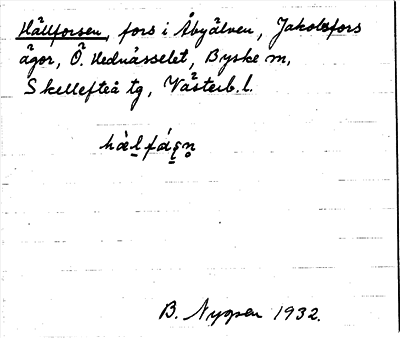 Hällforsen, fors i Åbyälven, Jakobsfors
ägor, Ö. Hednässelet, Byske sn,
Skellefteå tg, Västerb. l.
B. Nygren 1932.